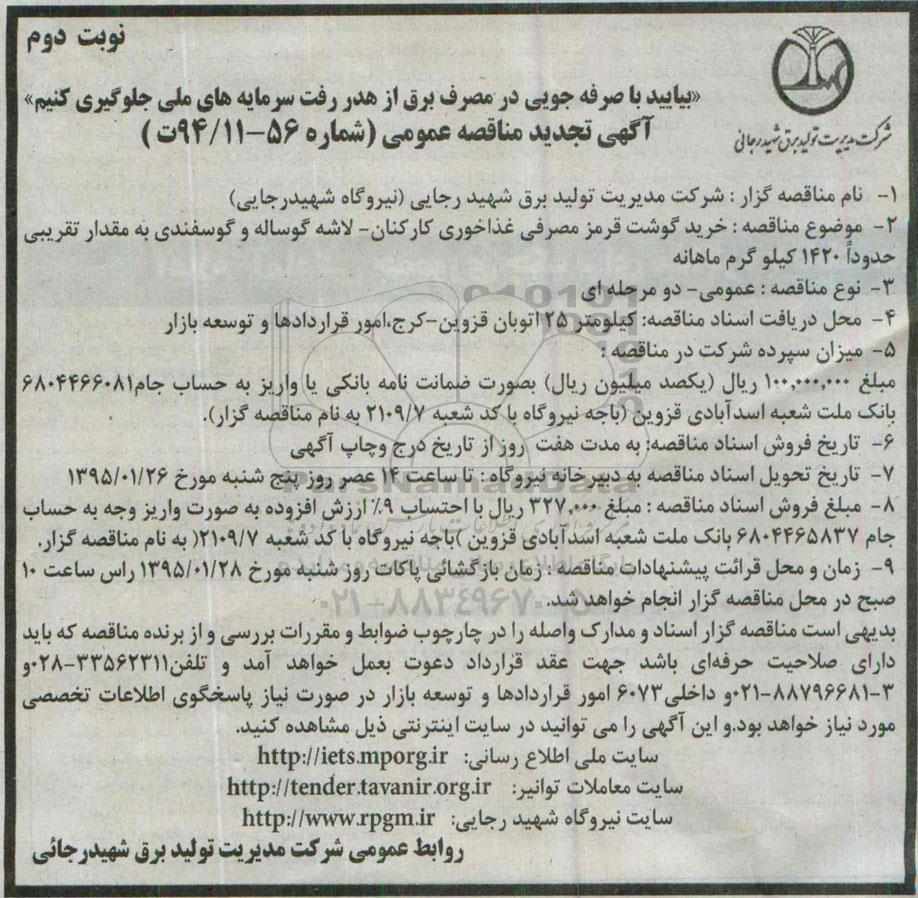 نوبت دوم
شرکت مدیریت تولید برق شهید رجائی
«بیایید با صرفه جویی در مصرف برق از هدر رفت سرمایه های ملی جلوگیری کنیم»
آگهی تجدید مناقصه عمومی (شماره ۵۶-۹۴/۱۱ت)
۱- نام مناقصه گزار : شرکت مدیریت تولید برق شهید رجایی (نیروگاه شهیدرجایی)
۲- موضوع مناقصه : خرید گوشت قرمز مصرفی غذاخوری کارکنان- لاشه گوساله و گوسفندی به مقدار تقریبی
حدوداً ۱۴۲۰ کیلو گرم ماهانه
۳- نوع مناقصه : عمومی- دو مرحله ای
۴- محل دریافت اسناد مناقصه: کیلومتر ۲۵ اتوبان قزوین-کرج،امور قراردادها و توسعه بازار
۵- میزان سپرده شرکت در مناقصه :
مبلغ ۱۰۰,۰۰۰,۰۰۰ ریال (یکصد میلیون ریال) بصورت ضمانت نامه بانکی یا واریز به حساب جام۶۸۰۴۴۶۶۰۸۱
بانک ملت شعبه اسدآبادی قزوین (باجه نیروگاه با کد شعبه ۲۱۰۹/۷ به نام مناقصه گزار).
۶- تاریخ فروش اسناد مناقصه: به مدت هفت روز از تاریخ درج وچاپ آگهی
۷- تاریخ تحویل اسناد مناقصه به دبیرخانه نیروگاه : تا ساعت ۱۴ عصر روز پنج شنبه مورخ ۱۳۹۵/۰۱/۲۶
۸- مبلغ فروش اسناد مناقصه : مبلغ ۳۲۷,۰۰۰ ریال با احتساب ۹٪ ارزش افزوده به صورت واریز وجه به حساب
جام ۶۸۰۴۴۶۵۸۳۷ بانک ملت شعبه اسدآبادی قزوین )باجه نیروگاه با کد شعبه ۲۱۰۹/۷( به نام مناقصه گزار.
۹- زمان و محل قرائت پیشنهادات مناقصه : زمان بازگشائی پاکات روز شنبه مورخ ۱۳۹۵/۰۱/۲۸ راس ساعت ۱۰
صبح در محل مناقصه گزار انجام خواهد شد.
بدیهی است مناقصه گزار اسناد و مدارک واصله را در چارچوب ضوابط و مقررات بررسی و از برنده مناقصه که باید
دارای صلاحیت حرفه‌ای باشد جهت عقد قرارداد دعوت بعمل خواهد آمد و تلفن۳۳۵۶۲۳۱۱-۰۲۸و
۳-۸۸۷۹۶۶۸۱-۰۲۱و داخلی۶۰۷۳ امور قراردادها و توسعه بازار در صورت نیاز پاسخگوی اطلاعات تخصصی
مورد نیاز خواهد بود.و این آگهی را می توانید در سایت اینترنتی ذیل مشاهده کنید.
سایت ملی اطلاع رسانی: http://iets.mporg.ir
سایت معاملات توانیر: http://tender.tavanir.org.ir
سایت نیروگاه شهید رجایی: http://www.rpgm.ir
روابط عمومی شرکت مدیریت تولید برق شهیدرجائی
ParsNamadData
۰۲۱-۸۸۳۴۹۶۷۰